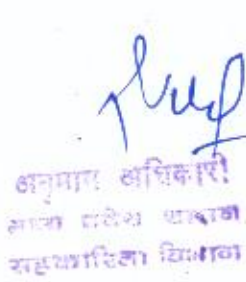 अनुभाग अधिकारी
मध्य प्रदेश शासन
सहकारिता विभाग